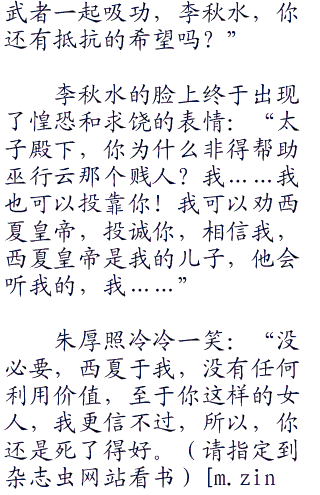 武者一起吸功，李秋水，你
还有抵抗的希望吗？”
李秋水的脸上终于出现
了惶恐和求饶的表情：“太
子殿下，你为什么非得帮助
巫行云那个贱人？我……我
也可以投靠你！我可以劝西
夏皇帝，投诚你，相信我，
西夏皇帝是我的儿子，他会
听我的，我……”
朱厚照冷冷一笑：“没
必要，西夏于我，没有任何
利用价值，至于你这样的女
人，我更信不过，所以，你
还是死了得好。（请指定到
杂志虫网站看书）[m.zin